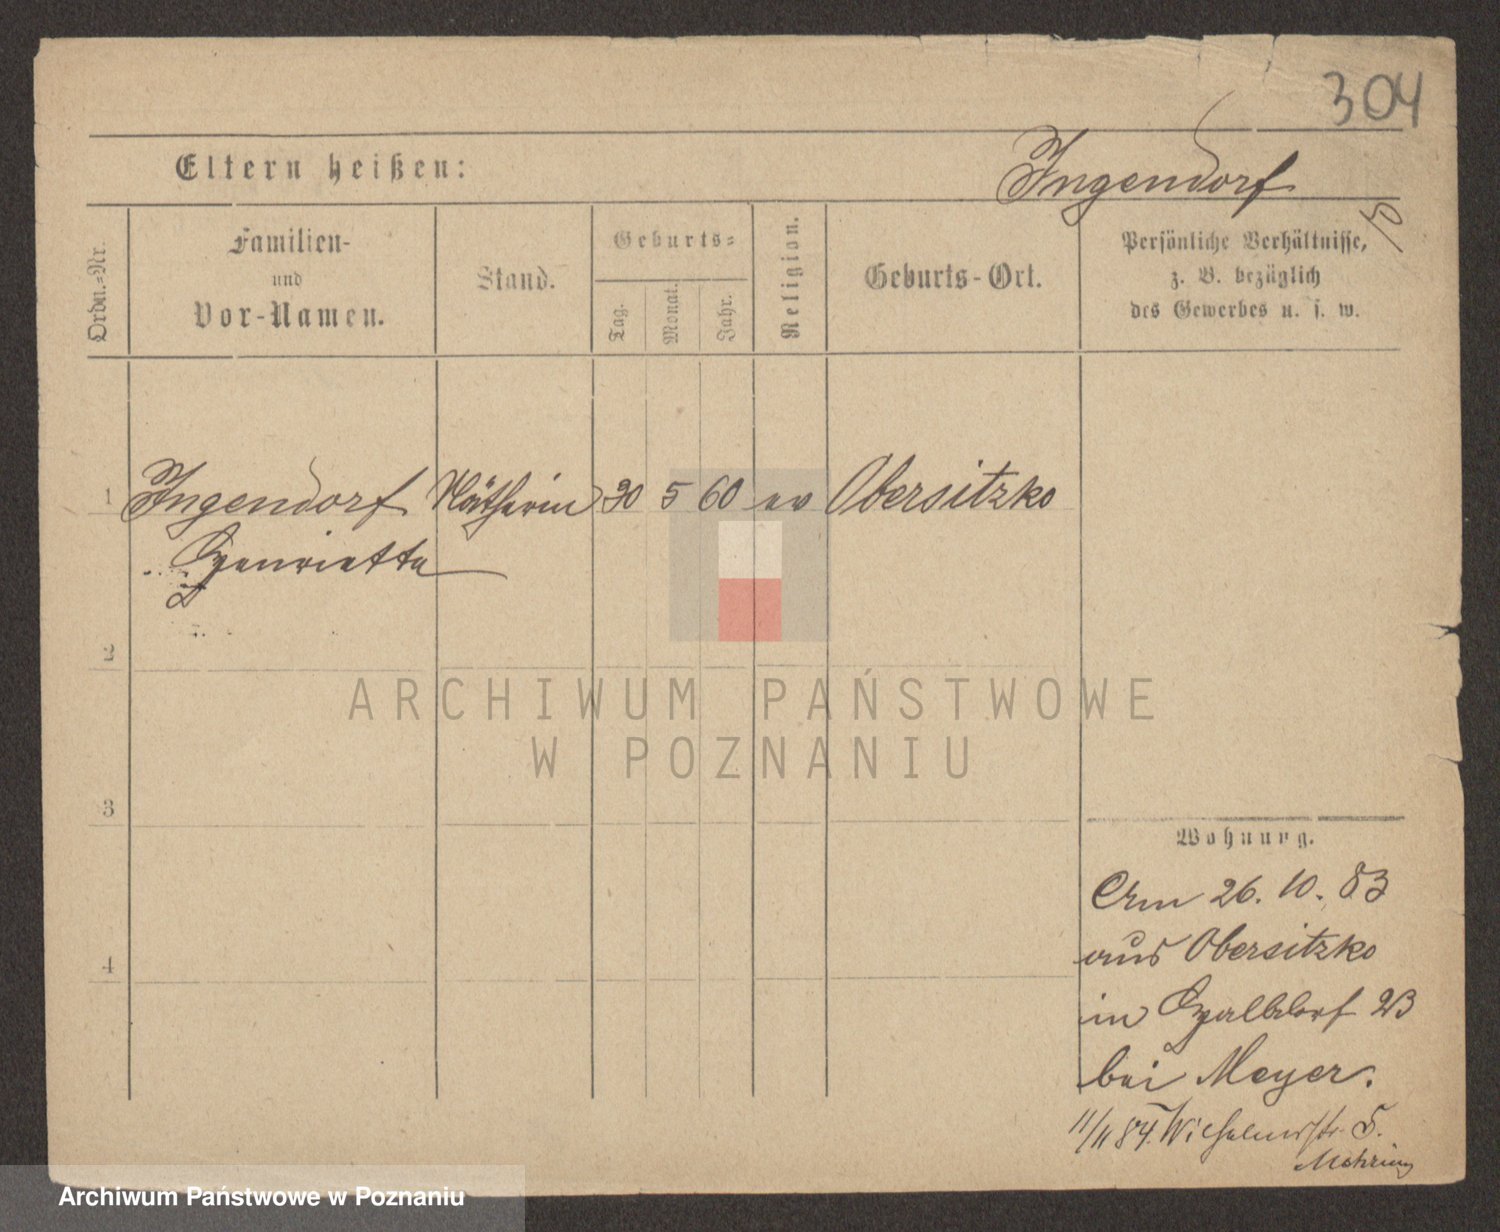 304
Eltern heißen:
Ingendorf
Ordn.=Nr.
Familien-
und
Vor-Namen.
Stand.
Geburts=
Tag.
Monat.
Jahr.
Religion.
Geburts-Ort.
Persönliche Verhältnisse,
z. B. bezüglich
des Gewerbes u. s. w.
1 Ingendorf Nätherin 30 5 60 ev Obersitzko
Henriette
2
ARCHIWUM PAŃSTWOWE
W POZNANIU
3
Wohnung.
26. 10. 83
aus Obersitzko
4
in Halbdorf 23
bei Meyer.
11/11 84. Wilhelmstr 5.
Archiwum Państwowe w Poznaniu